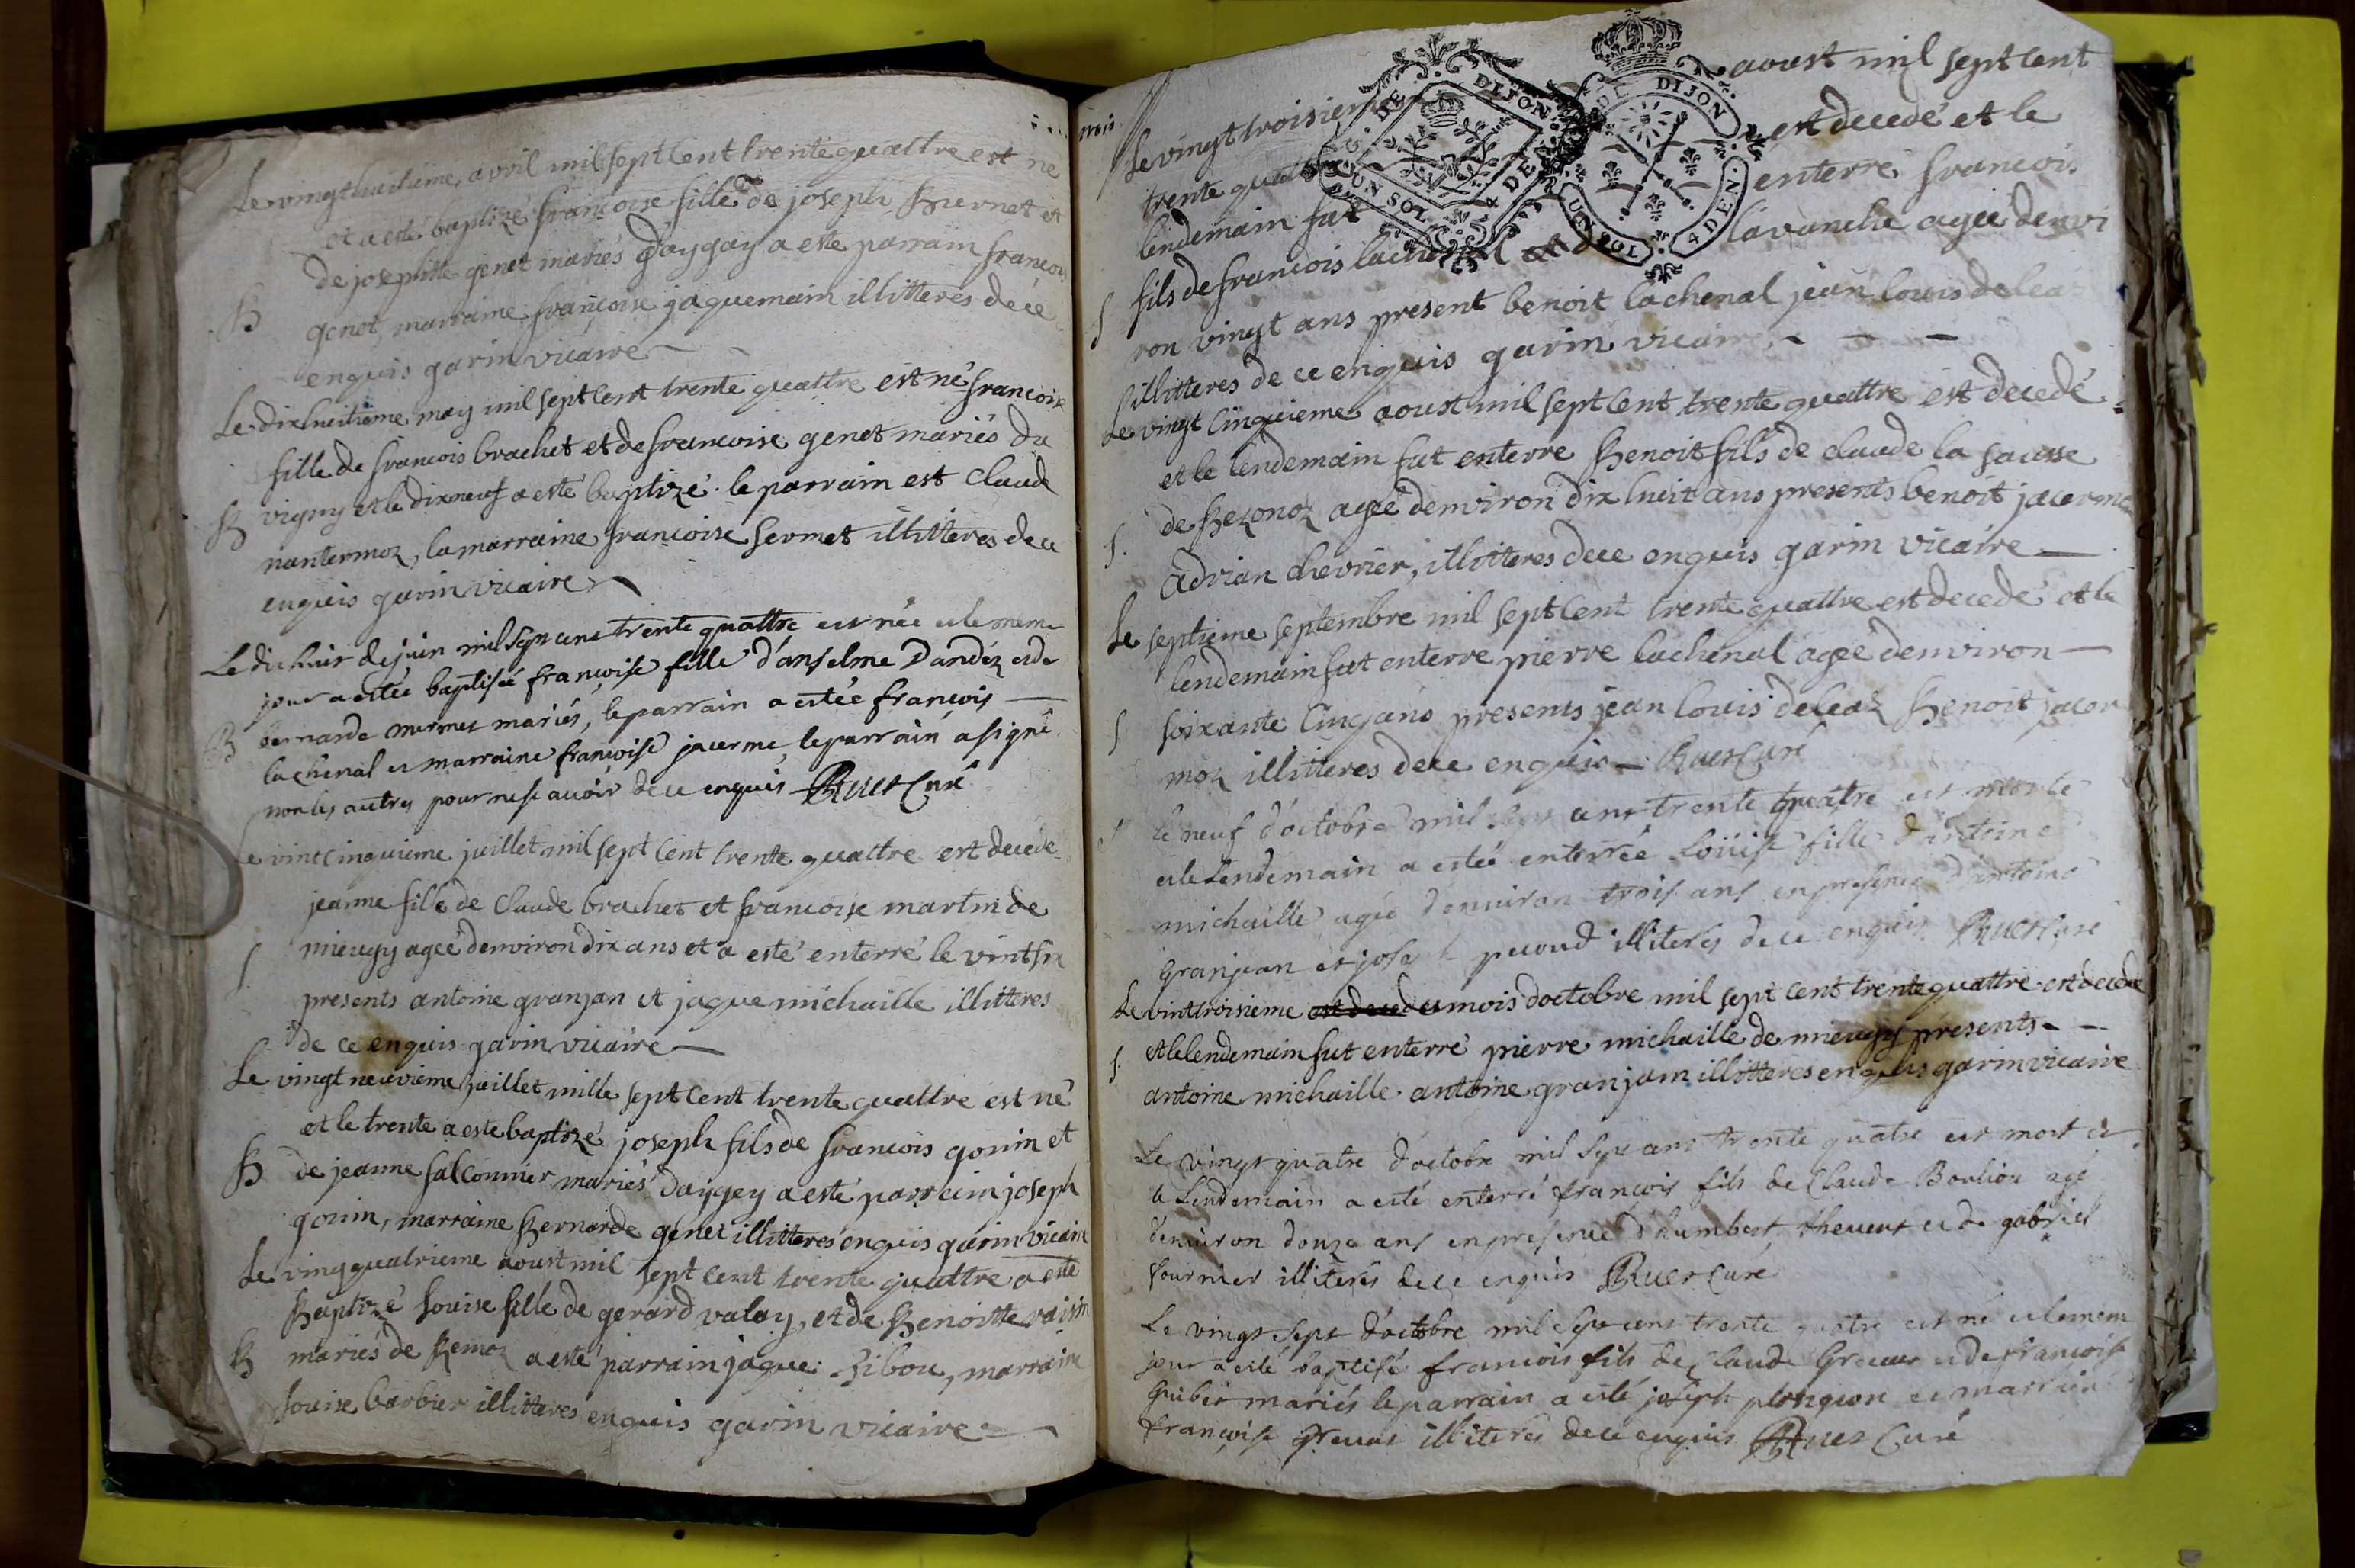 Le vingthuitieme avril mil sept cent trente quattre est ne
et a esté baptizé francoise fille de joseph Burnet et
de josephte genet mariés d'aygay a este parrain francois
B genet, marraine francoise jaquemain illitteres de ce
enquis garin vicaire
Le dixhuitieme may mil sept cent trente quattre est né francoise
fille de francois brachet et de francoise genet mariés du
B vigny et le dixneuf a esté baptizé. le parrain est claude
nantermoz, la marraine francoise sermet illitteres de ce
enquis garin vicaire
Le dix huit de juin mil sept cent trente quattre est née et le meme
jour a estée baptisée françoise fille d'anselme Dandéz et de
B bernarde mermet mariés, le parrain a estée françois
lachenal et marraine françoise jacerme, le parrain a signé
non les autres pour ne scavoir de ce enquis Ruet Curé
Le vintcinquieme juillet mil sept cent trente quattre est decedé
jeanne fille de Claude brachet et francoise martin de
S mieugy agée d'environ dix ans et a esté enterré le vintsix
presents antoine granjan et jaque michaille illitteres
de ce enquis garin vicaire
Le vingt neuvieme juillet mille sept cent trente quattre est né
et le trente a este baptizé joseph fils de francois gonin et
B de jeanne falconnier mariés d'aygey a esté parrain joseph
gonin, marraine Bernarde genet illitteres enquis garin vicaire
Le vingquatrieme aoust mil sept cent trente quattre a esté
Baptizé louise fille de gerard valay, et de Benoitte voisin
B mariés de Remoz a esté parrain jaque Bibou, marraine
louise barbier illitteres enquis garin vicaire
Le vingt troisieme aoust mil sept cent
trente quattre est decedé et le
lendemain fut enterré francois
fils de francois lachenal et de lavanche agée denvi
S ron vingt ans present benoit lachenal jean louis deleaz
illitteres de ce enquis garin vicaire
Le vingt cinquieme aoust mil sept cent trente quattre est decedé
et le lendemain fut enterré Benoit fils de claude la sausse
de Bezonoz agée denviron dix huit ans presents benoit jacermoz
S. adrian chevrier, illitteres de ce enquis garin vicaire
Le septieme septembre mil sept cent trente quattre est decedé et le
lendemain fut enterre pierre lachenal agée denviron
S soixante cinq ans presents jean louis deleaz Benoit jacer
moz illitteres de ce enquis Ruet Curé
S le neuf d'octobre mil sept cent trente quatre est morte
et le Lendemain a estée enterrée Loüise fille d'antoine
michaille agée d'environ trois ans en presence d'antoine
granjean et joseph pucoud illiterés de ce enquis Ruet Curé
Le vinttroisieme est decede du mois doctobre mil sept cent trente quattre est decede
S. et le lendemain fut enterré pierre michaille de mieugy presents
antoine michaille antoine granjam illitteres enquis garin vicaire
Le vingt quatre d'octobre mil sept cent trente quatre est mort et
le Lendemain a esté enterré françois fils de Claude Boulion agé
d'environ douze ans en presence d'humbert thevent et de gabriel
fournier illiterés de ce enquis Ruet Curé
Le vingt sept d'octobre mil sept cent trente quatre est né et le meme
jour a esté baptisé francois fils de Claude Grevat et de françoise
Guibet mariés le parrain a esté joseph plongeon et marraine
françoise Grevat illiterés de ce enquis Ruet Curé
DE DIJON
UN SOL 4 DEN.
DE DIJON
UN SOL 4 DEN.